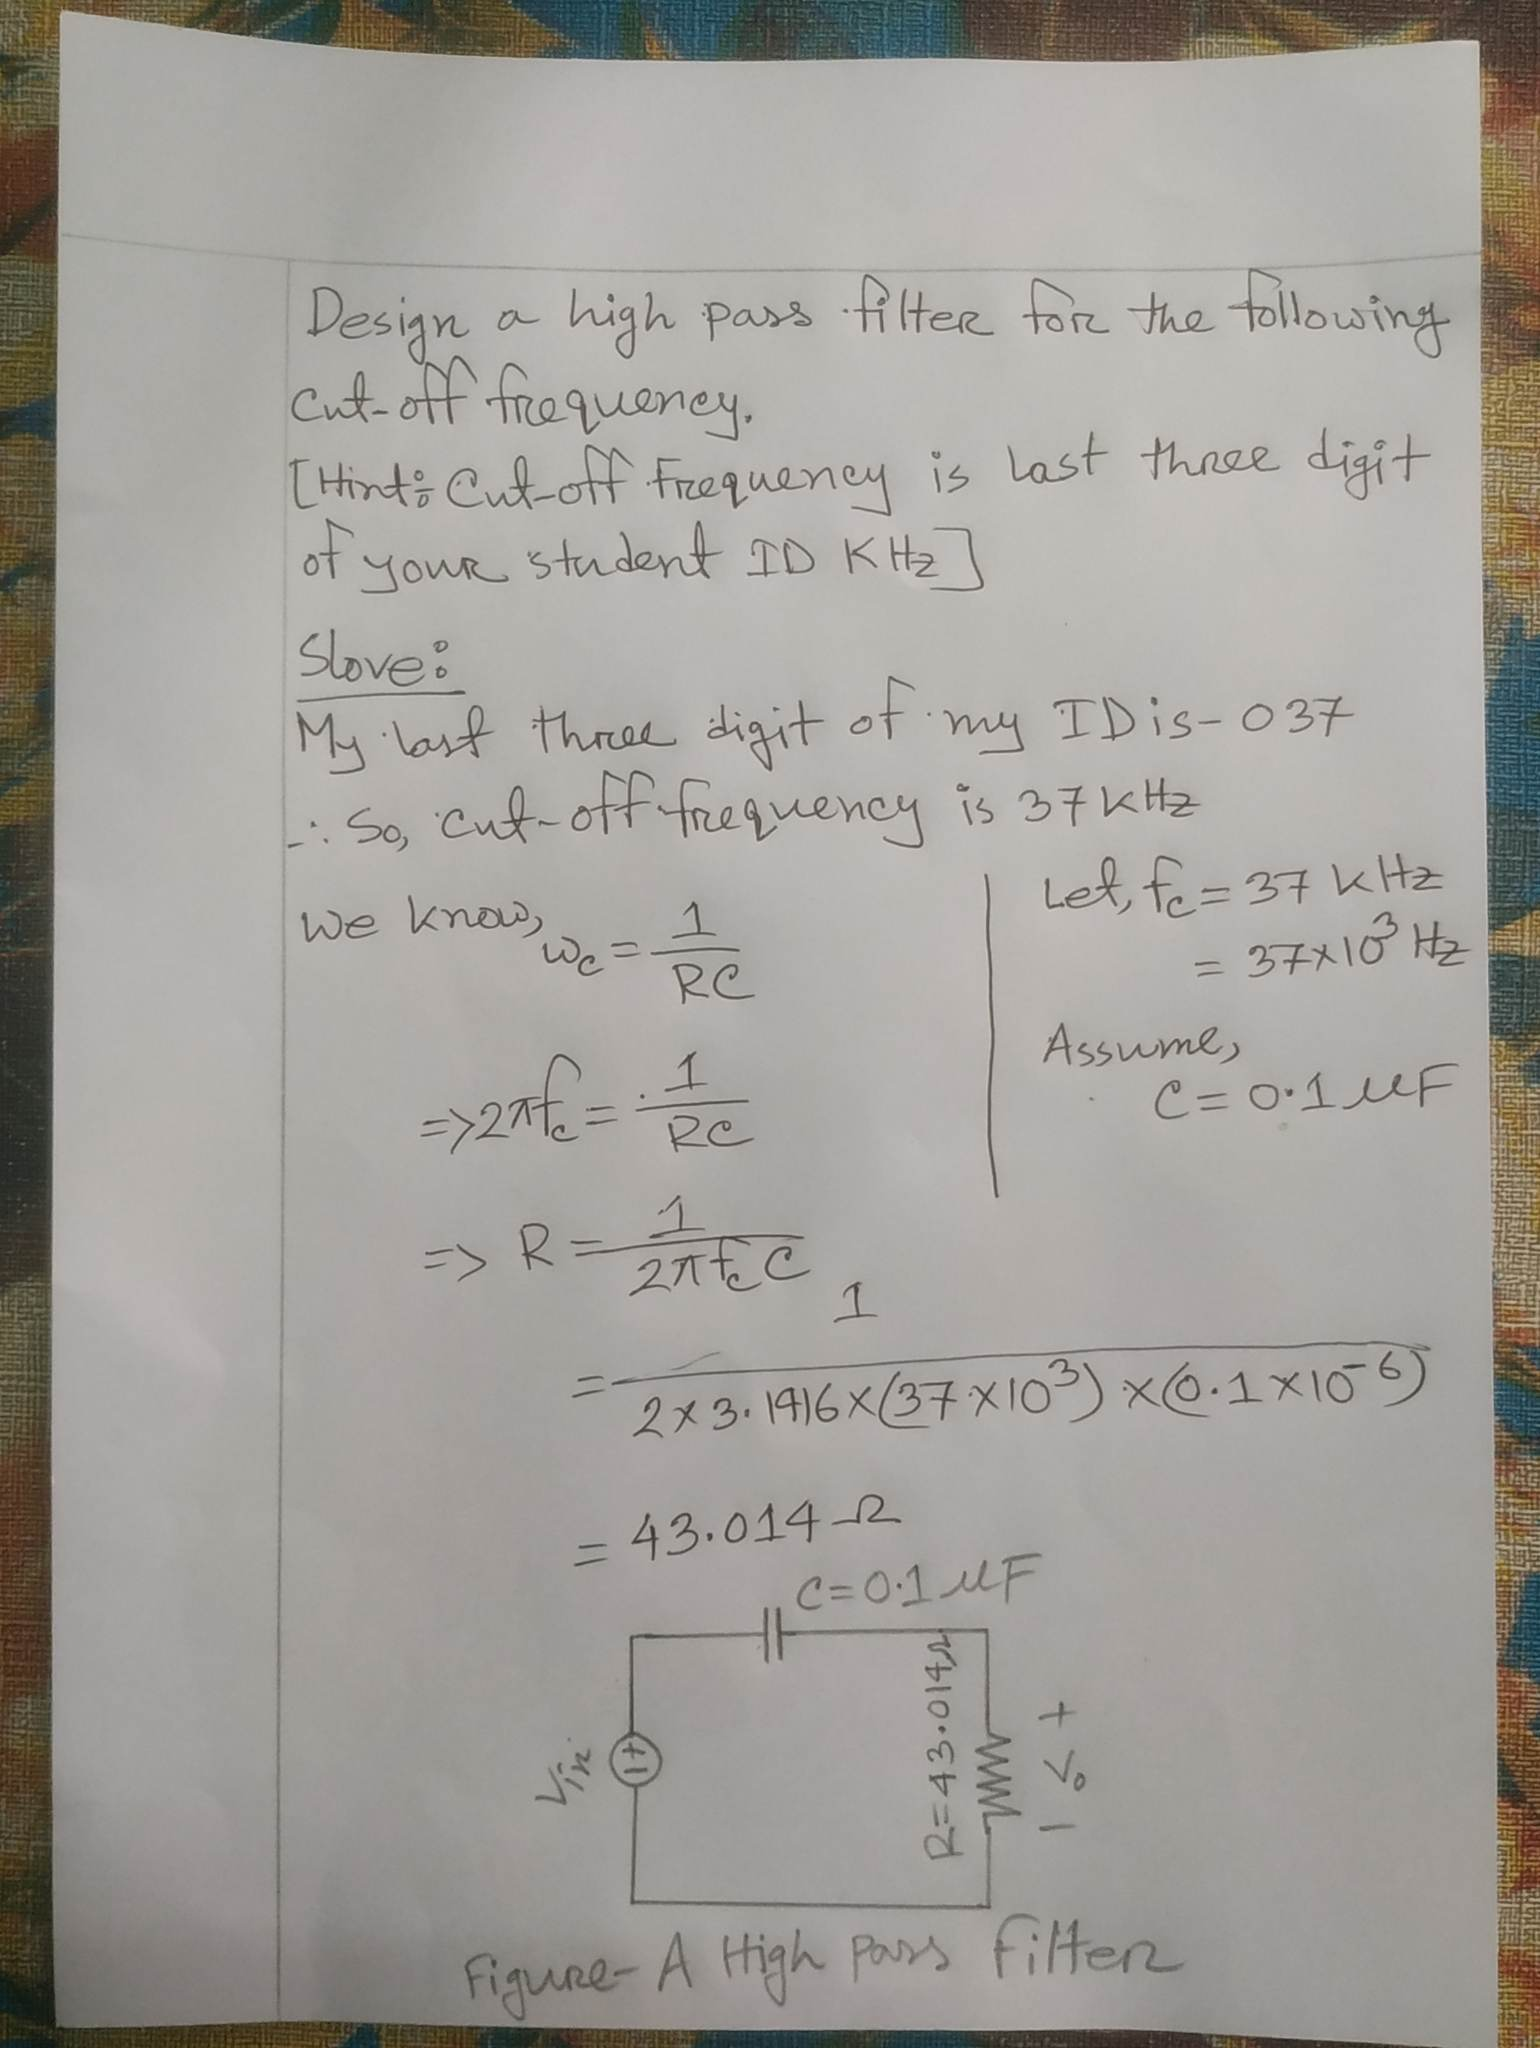 Design a high pass filter for the following
cut-off frequency.
[Hint: Cut-off Frequency is last three digit
of your student ID KHz]
Slove:
My last three digit of my ID is - 037
∴ So, cut-off frequency is 37 KHz
We know, ωc = 1/RC
=> 2πfc = 1/RC
=> R = 1/2πfcC
= 1/2×3.1416×(37×10³)×(0.1×10⁻⁶)
= 43.014 Ω
Let, fc = 37 KHz
= 37×10³ Hz
Assume,
C = 0.1 μF
C = 0.1 μF
Vin
+ -
R = 43.014Ω
+ Vo -
Figure - A High Pass Filter